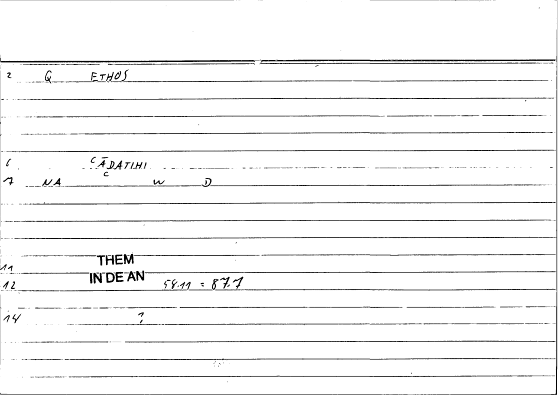 2 Q ETHOS
6 CĀDATIHI
C
7 NA W D
THEM
11
12 IN DE AN 58.11 = 87.7
14 ?